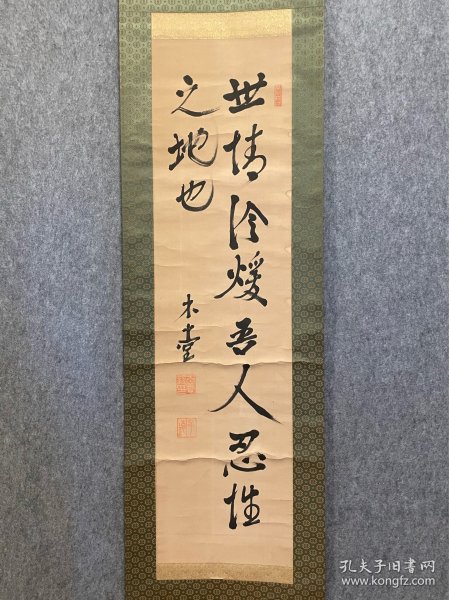 世情冷煖吾人忍性
之地也
木堂
孔夫子旧书网
www.kongfz.com